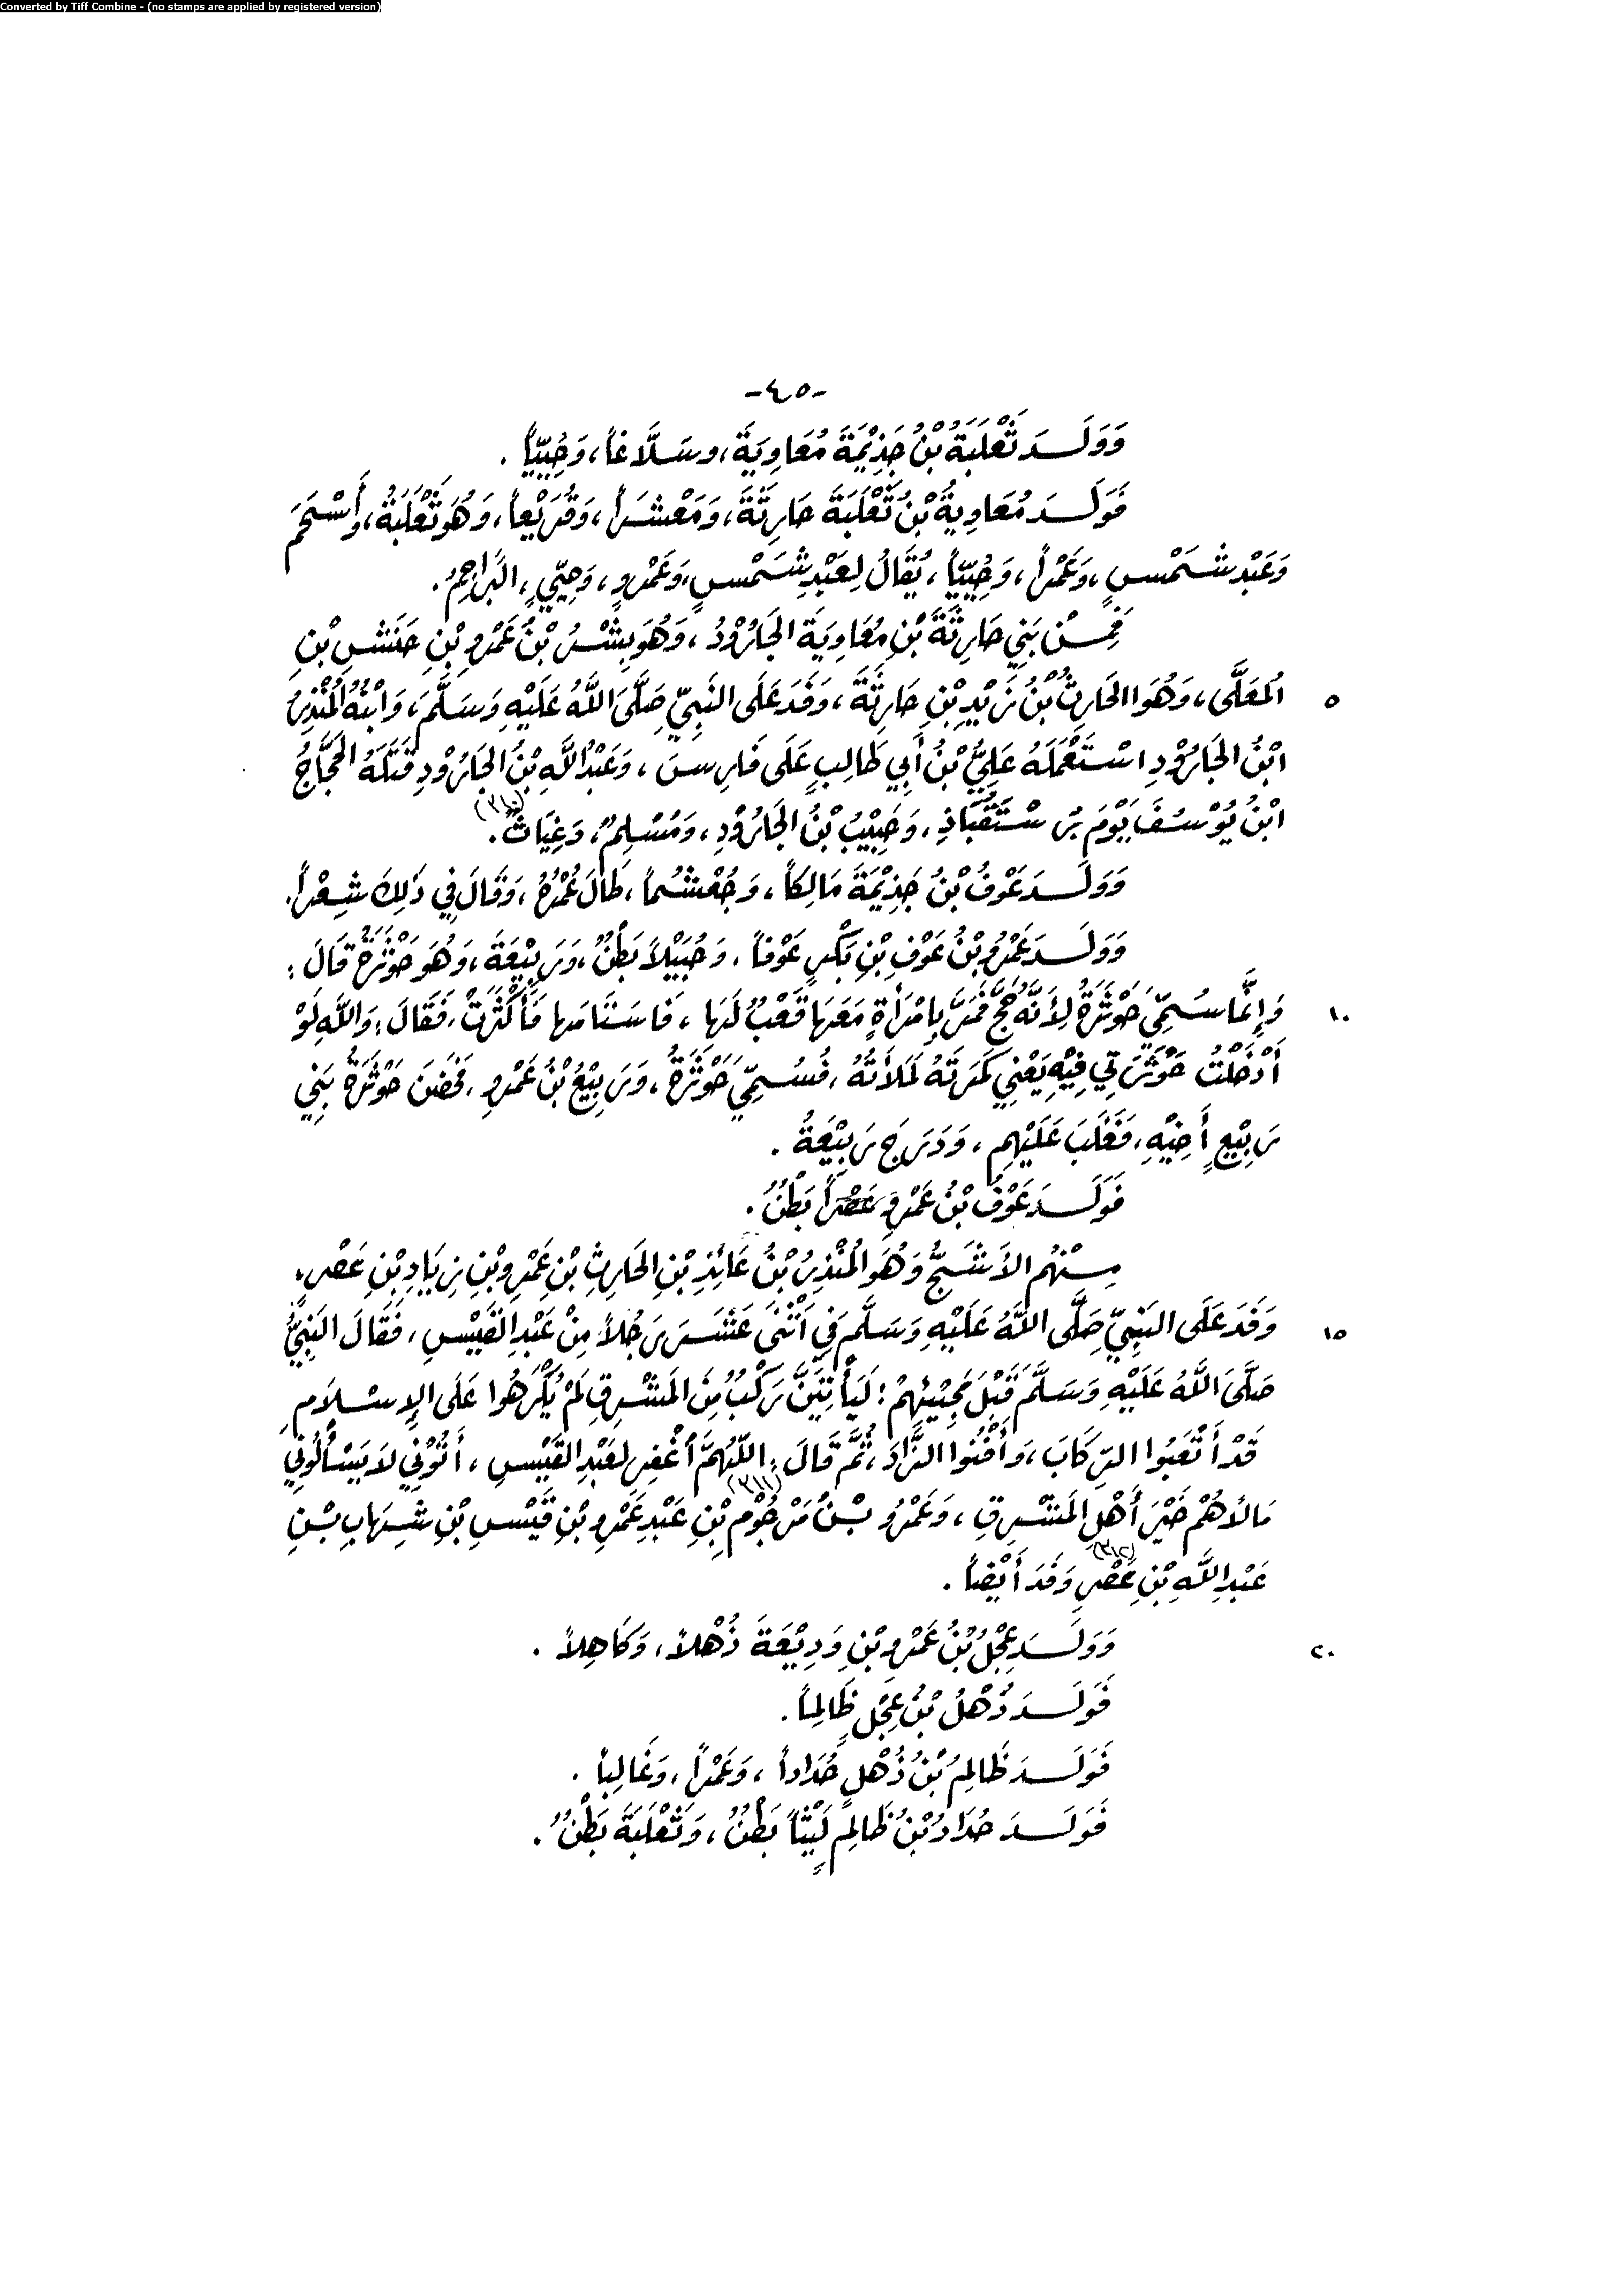 Converted by Tiff Combine - (no stamps are applied by registered version)
-٤٥-
وَوَلَـدَ ثَعْلَبَةُ بْنُ جَذِيْمَةَ مُعَاوِيَةَ، وسَلَّاغاً، وَحُيَيّاً .
فَوَلَـدَ مُعَاوِيةُ بْنُ ثَعْلَبَةَ حَارِثَةَ، وَمَعْشَراً، وَقُرَيْعاً، وَهُوَ ثَعْلَبَةُ، وأَسْحَمَ
وَعَبْدِ شَمْسٍ، وَعَمْراً، وَحُيَيّاً، يُقَالُ لِعَبْدِ شَمْسٍ، وَعَمْروٍ، وَحِيَيٍّ، البَرَاجِمُ.
فَمِـنْ بَنِي حَارِثَةَ بْنِ مُعَاوِيَةَ الجَارُوْدُ، وَهُوَ بِشْرُ بْنُ عَمْرِو بْنِ حَنَشِ بْنِ
٥ المُعَلَّى، وَهُوَ الحَارِثُ بْنُ زَيْدِ بْنِ حَارِثَةَ، وَفَدَ عَلَى النَّبِيِّ صَلَّى اللَّهُ عَلَيْهِ وَسَلَّمَ، وَابْنُهُ المُنْذِرُ
ابْنُ الجَارُوْدِ اسْتَعْمَلَهُ عَلِيُّ بْنُ أَبِي طَالِبٍ عَلَى فَارِسَ، وَعَبْدُ اللَّهِ بْنُ الجَارُوْدِ قَتَلَهُ الحَجَّاجُ
ابْنُ يُوْسُفَ يَوْمَ رُسْتَقْبَاذِ، وَحَبِيْبُ بْنُ الجَارُوْدِ، وَمُسْلِمٌ، وَغِيَاثٌ (٣١٠).
وَوَلَـدَ عَوْفُ بْنُ جَذِيْمَةَ مَالِكاً، وَجُعْشُماً، طَالَ عُمْرُهُ، وَقَالَ فِي ذَلِكَ شِعْراً.
وَوَلَـدَ عَمْرُو بْنُ عَوْفِ بْنِ بَكْرٍ عَوْفاً، وَحُبَيْلاً بَطْنٌ، وَرَبِيْعَةَ، وَهُوَ حَوْثَرَةُ قَالَ:
١٠ وَإِنَّمَا سُمِّيَ حَوْثَرَةُ لِأَنَّهُ حَجَّ فَمَرَّ بِامْرَأَةٍ مَعَهَا قَعْبٌ لَهَا، فَاسْتَامَهَا فَأَكْثَرَتْ، فَقَالَ: وَاللَّهِ لَوْ
أَدْخَلْتُ حَوْثَرَتِي فِيْهِ يَعْنِي كَمَرَتَهُ لَمَلأَتُهُ، فَسُمِّيَ حَوْثَرَةُ، وَرَبِيْعُ بْنُ عَمْروٍ، فَحَضَنَ حَوْثَرَةُ بَنِي
رَبِيْعٍ أَخِيْهِ، فَغَلَبَ عَلَيْهِم، وَدَرَجَ رَبِيْعَةُ .
فَوَلَـدَ عَوْفُ بْنُ عَمْروٍ عَصَراً بَطْنٌ .
مِـنْهُم الأَشَجُّ وَهُوَ المُنْذِرُ بْنُ عَائِذِ بْنِ الحَارِثِ بْنِ عَمْرِو بْنِ زِيَادِ بْنِ عَصْرٍ،
١٥ وَفَدَ عَلَى النَّبِيِّ صَلَّى اللَّهُ عَلَيْهِ وَسَلَّمَ فِي اثْنَى عَشَرَ رَجُلاً مِنْ عَبْدِ القَيْسِ، فَقَالَ النَّبِيُّ
صَلَّى اللَّهُ عَلَيْهِ وَسَلَّمَ قَبْلَ مَجِيْئِهِمْ: لَيَأْتِيَنَّ رَكْبٌ مِنَ المَشْرِقِ لَمْ يُكْرَهُوا عَلَى الإِسْلَامِ
قَدْ أَتْعَبُوا الرِّكَابَ، وَأَفْنُوا الزَّادَ، ثُمَّ قَالَ: اللَّهُمَّ اُغْفِرْ لِعَبْدِ القَيْسِ، أَتُوْنِي لَا يَسْأَلُونِي
مَالاً هُمْ خَيْرَ أَهْلِ المَشْرِقِ، وَعَمْرُو بْنُ مَرْجُوْمِ (٣١١) بْنِ عَبْدِ عَمْرِو بْنِ قَيْسِ بْنِ شِهَابِ بْنِ
عَبْدِ اللَّهِ بْنِ عَصْرٍ (٣١٢) وَفَدَ أَيْضاً .
٢٠ وَوَلَـدَ عِجْلُ بْنُ عَمْرِو بْنِ وَدِيْعَةَ ذُهْلاً، وَكَاهِلاً .
فَوَلَـدَ ذُهْلُ بْنُ عِجْلٍ ظَالِماً .
فَوَلَـدَ ظَالِمُ بْنُ ذُهْلٍ حُدَاداً، وَعَمْراً، وَغَالِباً .
فَوَلَـدَ حُدَادُ بْنُ ظَالِمٍ لَيْثاً بَطْنٌ، وَثَعْلَبَةَ بَطْنٌ .